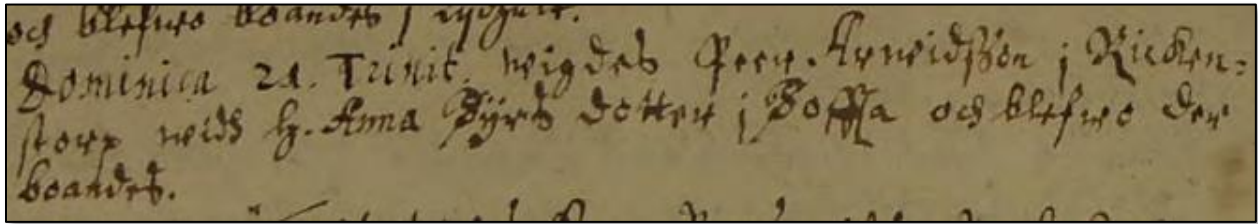 och blefwo boandes i
Dominica 21. Trinit. wigdes Peer Arwidsson i Ricken-
storp widh h. Anna Byrs dotter i Boffla och blefwo der
boandes.